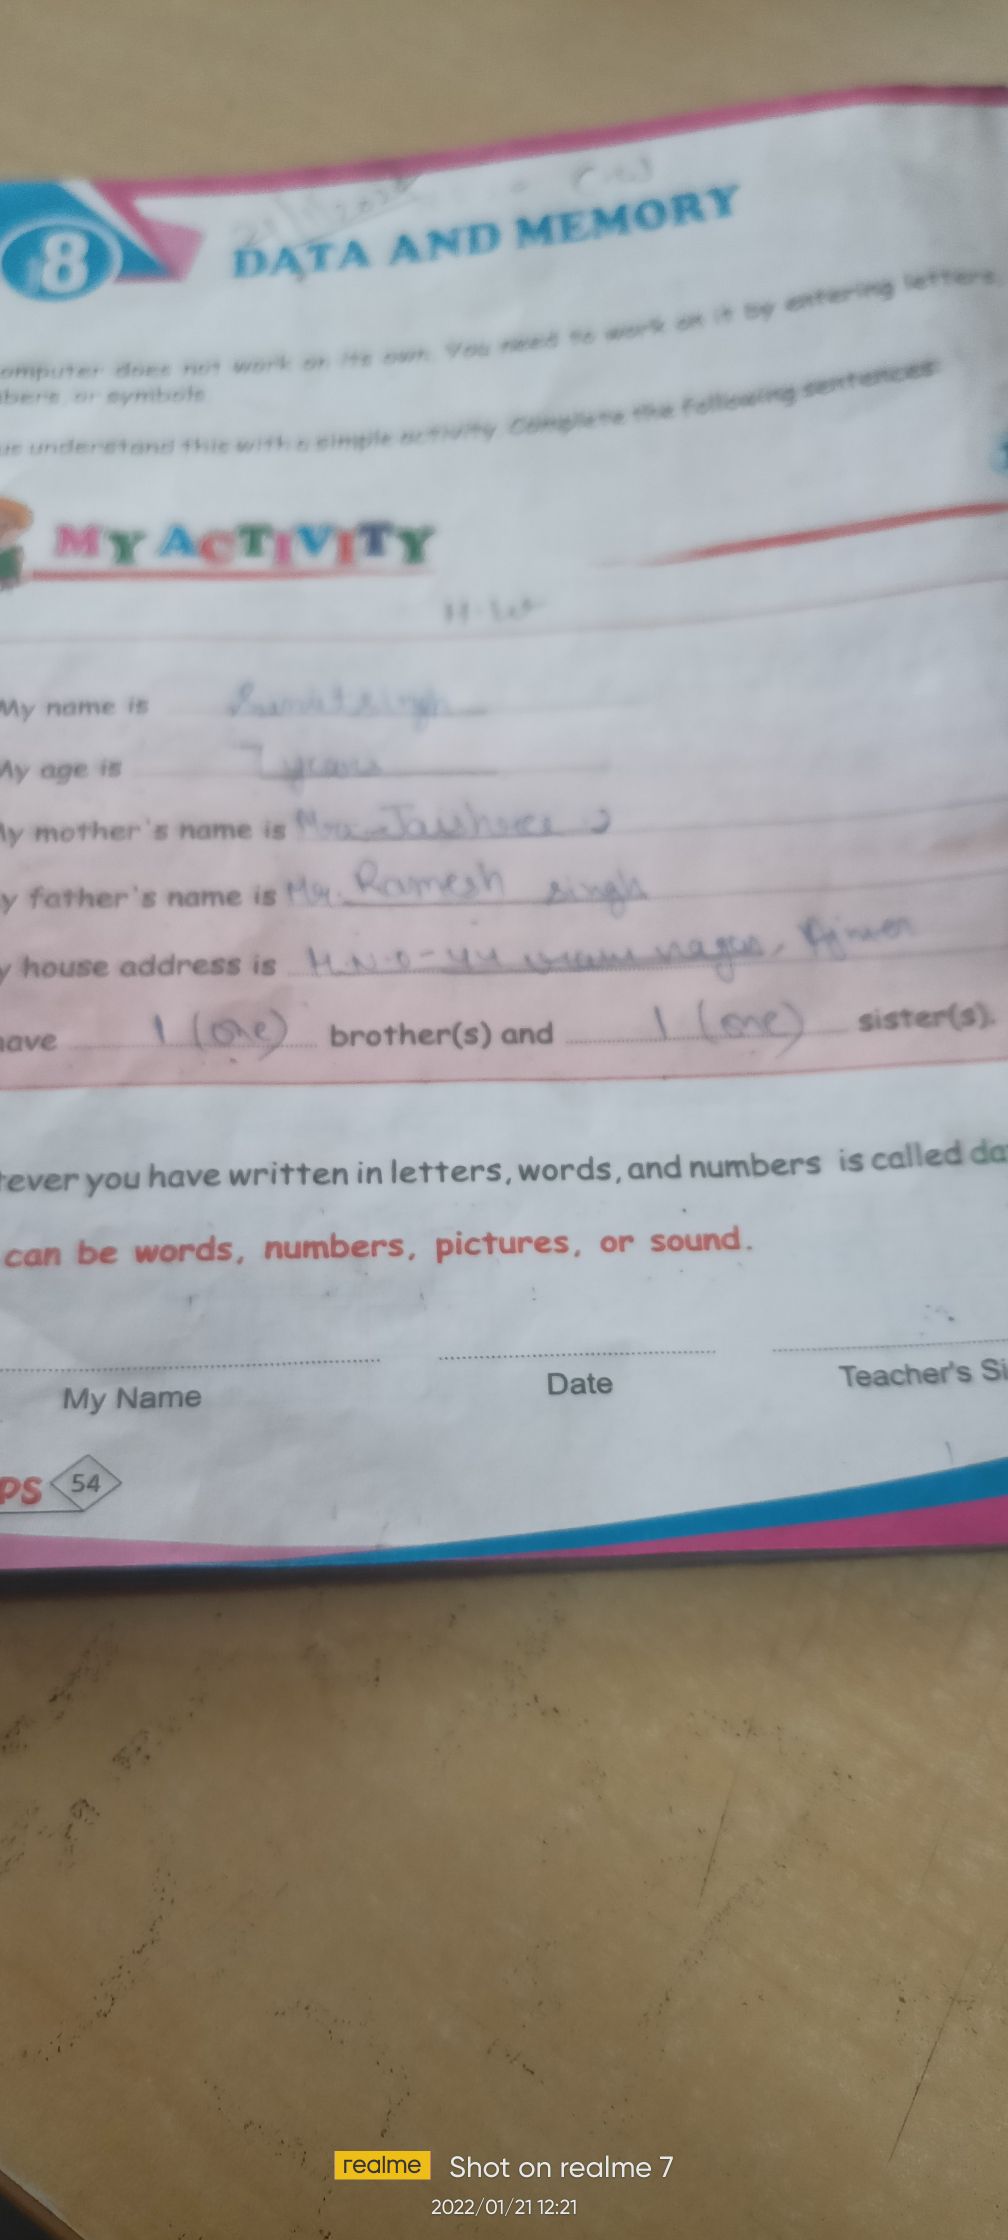 8
DATA AND MEMORY
omputer does not work on its own. You need to work on it by entering letters,
bers, or symbols.
us understand this with a simple activity. Complete the following sentences:
MY ACTIVITY
H.W
My name is singh
My age is 7 years
y mother's name is
y father's name is Mr. Ramesh singh
y house address is H.N.O-44 nagar, Ajmer
have 1 (one) brother(s) and 1 (one) sister(s).
tever you have written in letters, words, and numbers is called da
can be words, numbers, pictures, or sound.
My Name Date Teacher's Si
PS 54
realme Shot on realme 7
2022/01/21 12:21